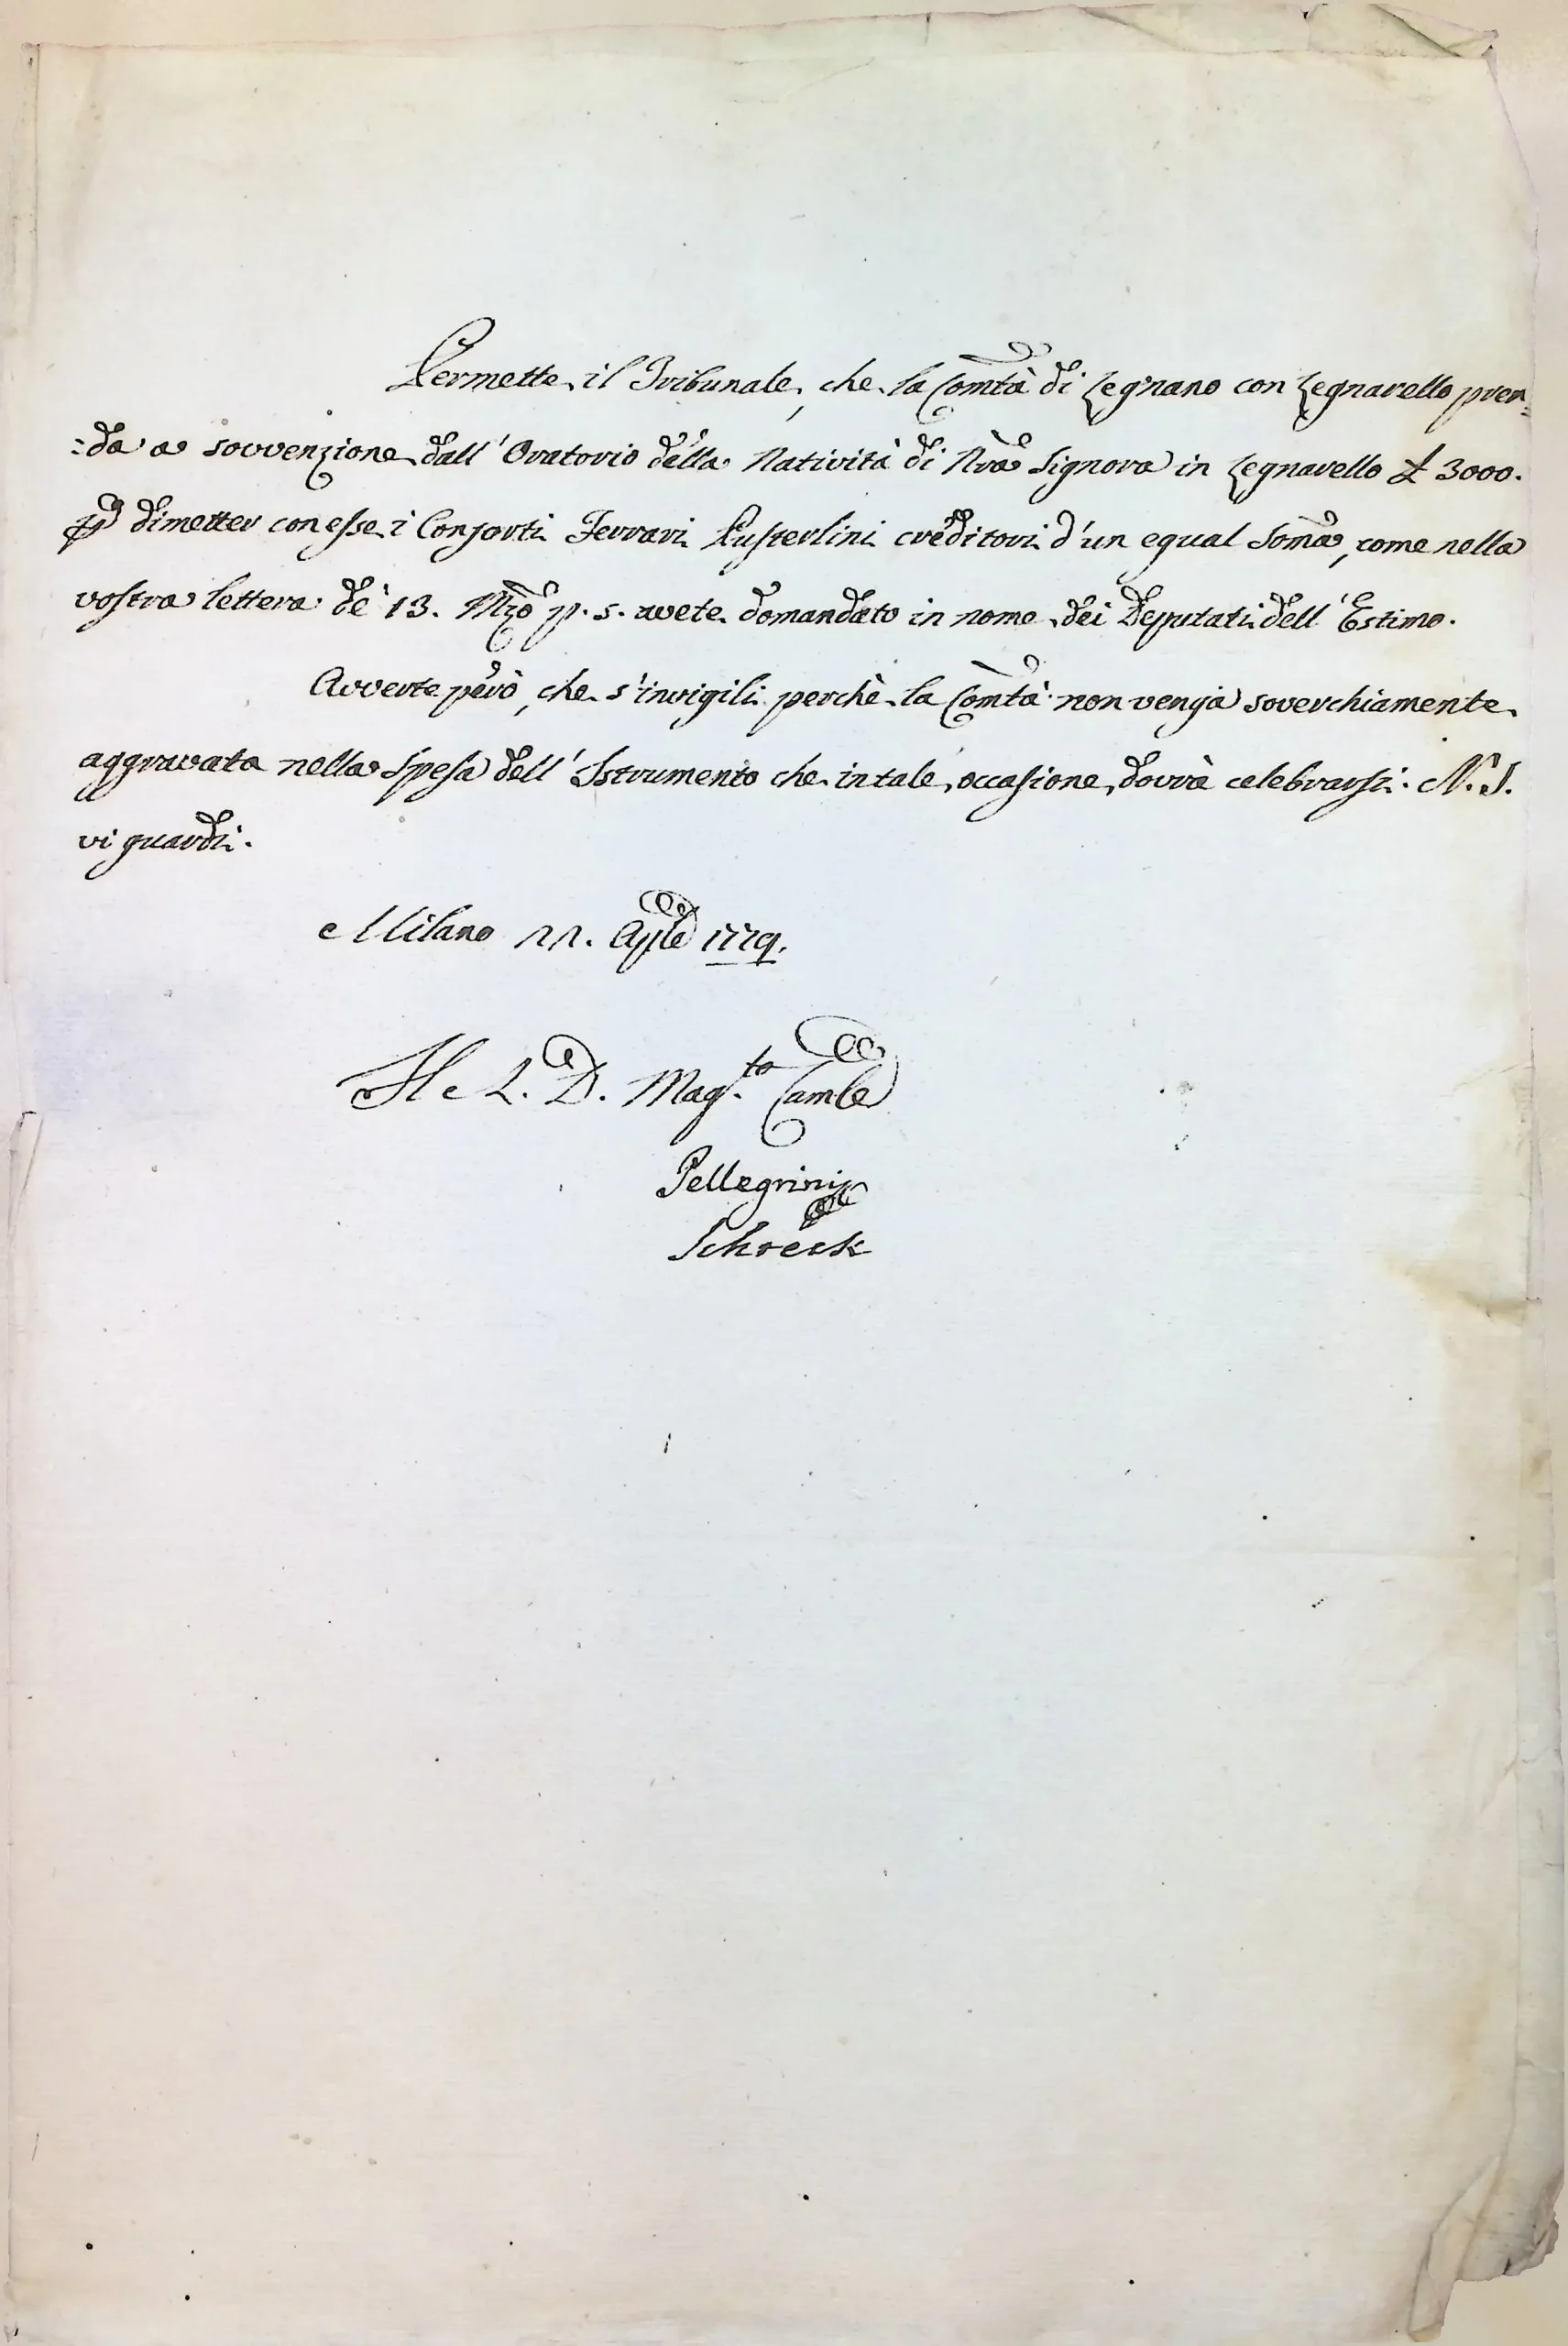 Permette il Tribunale, che la Comtà di Legnano con Legnarello pren=
=da a sovvenzione dall'Oratorio della Natività di Nrã Signora in Legnarello £ 3000.
p dimetter con esse i Consorti Ferrari Pusterlini creditori d'un egual Somã, come nella
vostra lettera de' 13. Mzõ p. s. avete domandato in nome dei Deputati dell'Estimo.
Avverte però, che s'invigili perchè la Comtà non venga soverchiamente
aggravata nella Spesa dell'Istrumento che in tale occasione dovrà celebrarsi. N. S.
vi guardi.
Milano 22. Aple 1779.
Il R. D. Mag.to Camle
Pellegrini
Schreck